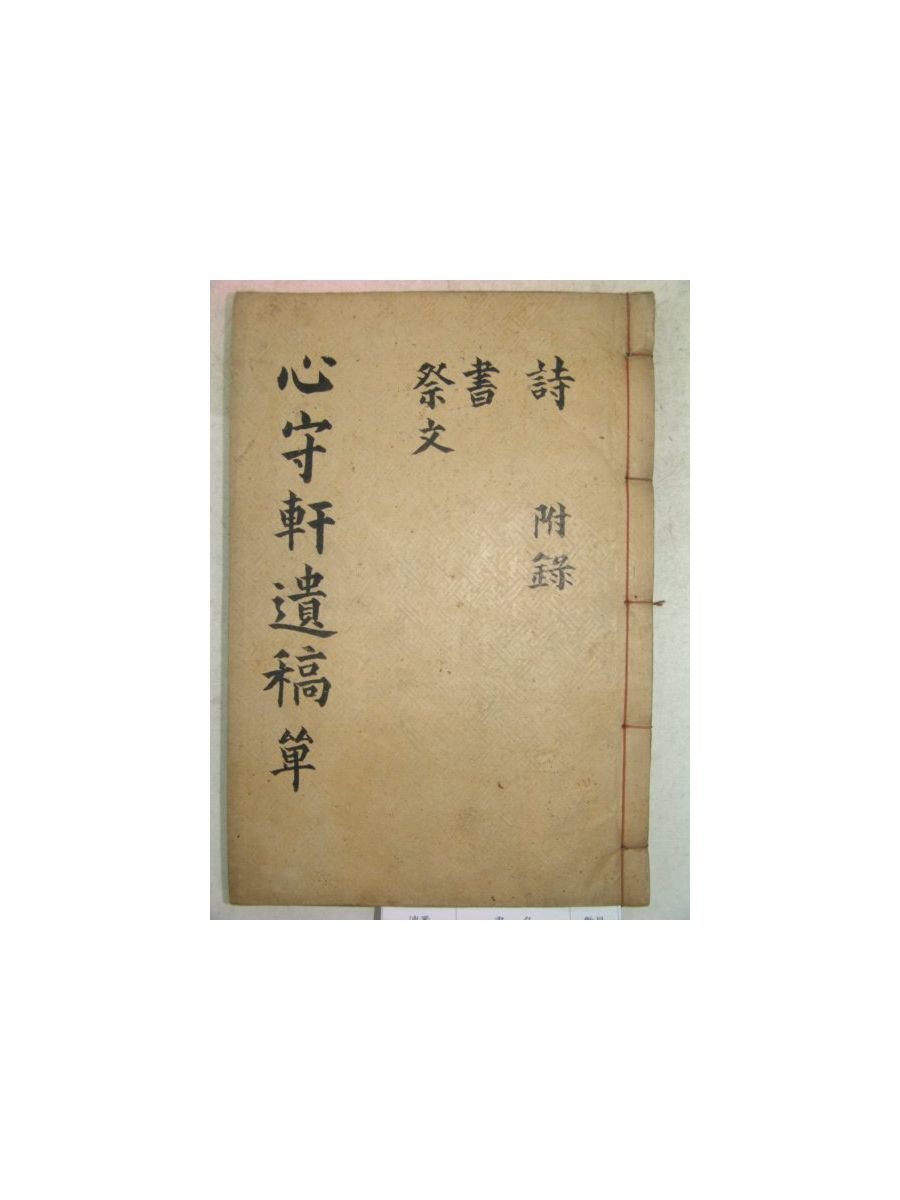 詩 附錄
書
祭文
心守軒遺稿 單